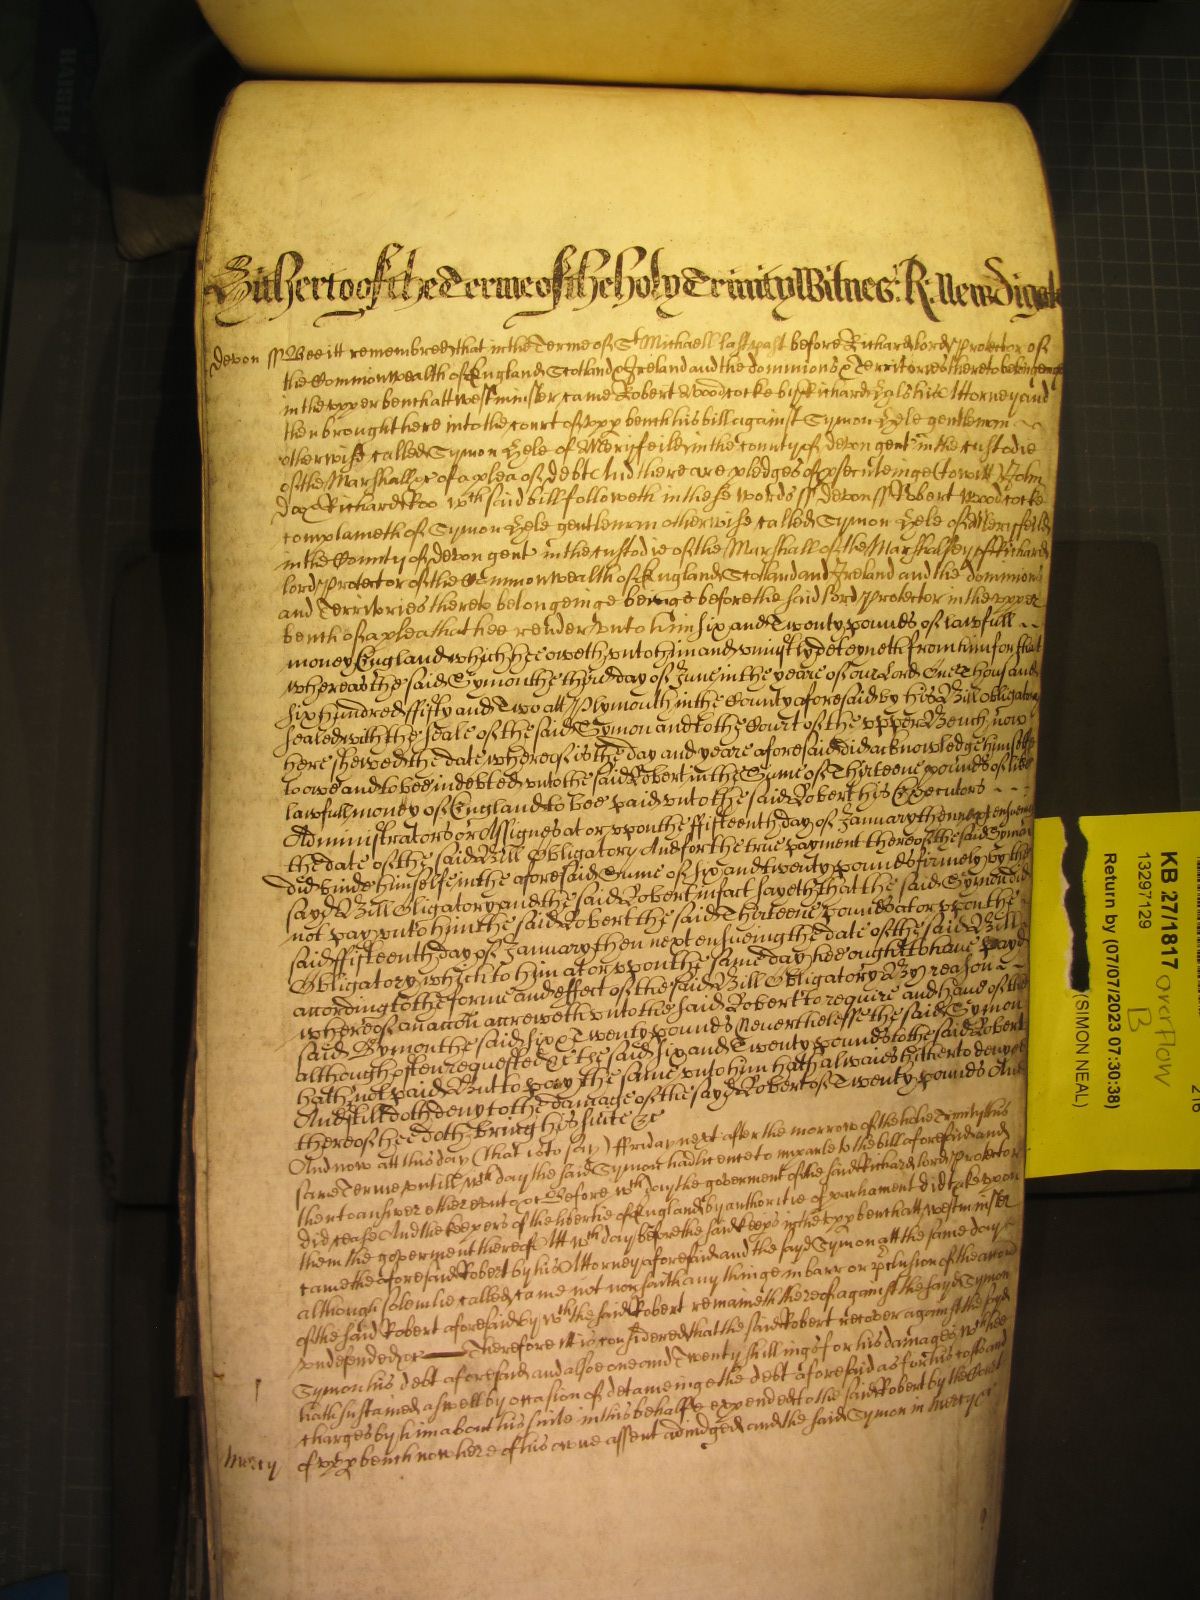 Hitherto of the Terme of the holy Trinity Witnes: R: Newdigate
Devon ss Bee itt remembred that in the Terme of St Michaell last past before Richard lord Protector of
the Commonwealth of England Scotland & Ireland and the dominions & Territories thereto belongeinge
in the upper bench att Westminster came Robert Woodcocke by Richard his Attorney and
then brought here into the court of upp bench his bill against Symon Hele gentleman
otherwise called Symon Hele of Merifeild in the county of Devon gent in the custodie
of the Marshall &c of a plea of debt And there are pledges of psecuteinge (to witt) John
Doo & Richard Roo wch said bill followeth in these words ss Devon ss Robert Woodcocke
complaineth of Symon Hele gentleman otherwise called Symon Hele of Merifeild
in the County of Devon gent in the custodie of the Marshall of the Marshalsey of Richard
lord Protector of the Commonwealth of England Scotland and Ireland and the dominions
and Territories thereto belongeinge beinge before the said lord Protector in the upper
bench of a plea that hee render unto him six and Twenty pounds of lawfull
money England which hee oweth unto him and uniustly deteyneth from him for that
whereas the said Symon the third day of June in the yeare of our Lord One Thousand
six hundred fifty and Two att Plymouth in the County aforesaid by his Bill Obligatory
sealed with the seale of the said Symon and to the Court of the upper Bench now
here shewed the date whereof is the day and yeare aforesaid did acknowledge himselfe
to owe and to bee indebted unto the said Robert in the Summe of Thirteene pounds of like
lawfull money of England to bee paid unto the said Robert his Executors
Administrators or Assignes at or upon the ffifteenth day of January then next ensueing
the date of the said Bill Obligatory And for the true payment thereof the said Symon
did binde himselfe in the aforesaid Summe of six and twenty pounds firmely by the
sayd Bill Obligatory and the said Robert in fact sayeth that the said Symon did
not pay unto him the said Robert the said Thirteene pounds at or upon the
said ffifteenth day of January then next ensueing the date of the said Bill
Obligatory which to him at or upon the same day hee ought to have payd
according to the forme and effect of the said Bill Obligatory By reason
whereof an accon accreweth unto the said Robert to require and have of the
said Symon the said six & Twenty pounds Neverthelesse the said Symon
although often requested &c the said six and Twenty pounds to the said Robert
hath not paid But to pay the same unto him hath alwaies hitherto denyed
And still doth deny to the damage of the sayd Robert of Twenty pounds And
thereof hee doth bring his suite &c
And now att this day (that is to say) ffriday next after the morrow of the holie Trinity this
same Terme untill wch day the said Symon had licence to imparle to the bill aforesaid and
then to answere thereunto &c Before wch day the goverment of the said Richard lord Protector
did cease And the keepers of the libertie of England by authoritie of parliament did take upon
them the goverment thereof Att wch day before the said keeps in the upp bench att Westminster
came the aforesaid Robert by his Attorney aforesaid and the sayd Symon att the same day
although solemlie called came not nor saith any thinge in barr or pclusion of the accon
of the said Robert aforesaid by wch the said Robert remaineth thereof against the sayd Symon
undefended &c Therefore itt is considered that the said Robert recover against the sayd
Symon his debt aforesaid and alsoe one and Twenty shillings for his damages wch hee
hath sustained aswell by occasion of detaineinge the debt aforesaid as for his costs and
charges by him about his suite in this behalfe expended to the said Robert by the Court
Mercy of upp bench now here of his owne assent adiudged and the said Symon in Mercy &c
KB 27/1817 overflow
13297129 B
Return by (07/07/2023 07:30:38)
(SIMON NEAL)
216
KAISER